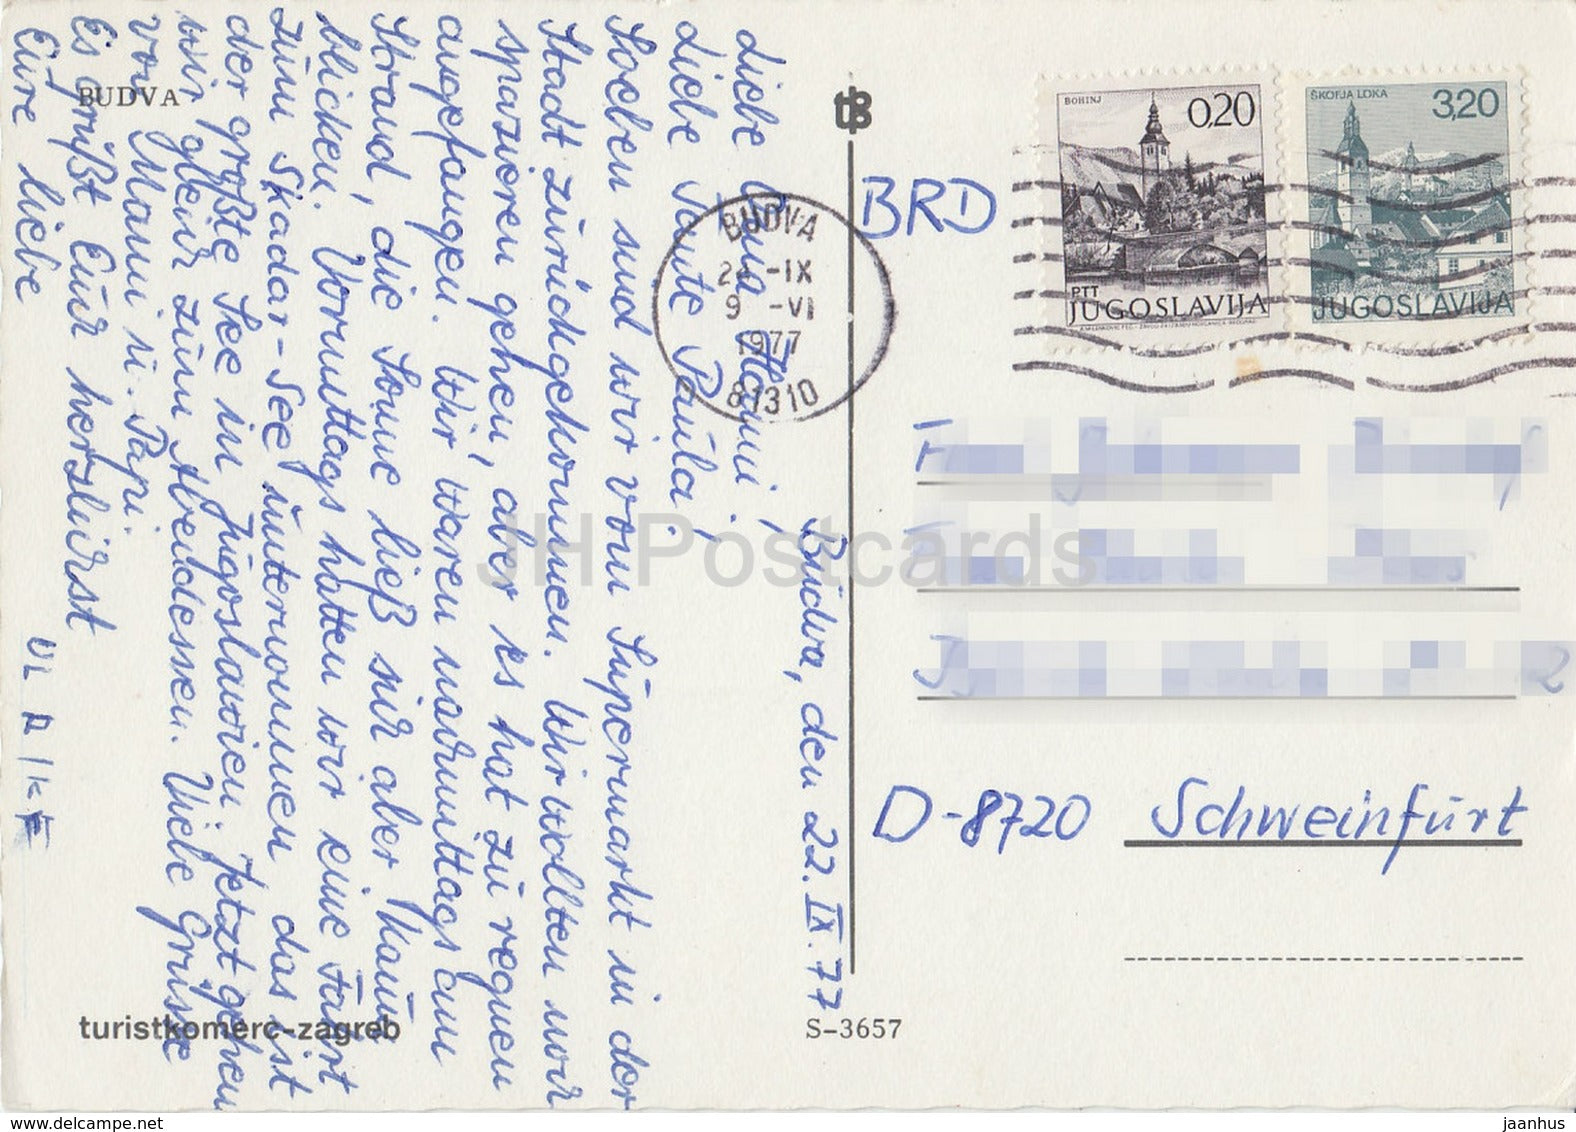 BUDVA
Budva, den 22. IX. 77
Liebe Oma Hanni,
Liebe Tante Paula,
Soeben sind wir vom Supermarkt in der
Stadt zurückgekommen. Wir wollten noch
spazieren gehen, aber es hat zu regnen
angefangen. Wir waren nachmittags am
Strand, die Sonne ließ sich aber kaum
blicken. Vormittags hatten wir eine Fahrt
zum Skadar-See unternommen das ist
der größte See in Jugoslawien. Jetzt gehen
wir gleich zum Abendessen. Viele Grüsse
von Mami u. Papi.
Es grüßt Euch herzlichst
Eure liebe
BRD
D-8720 Schweinfurt
BOHINJ
0,20
PTT
JUGOSLAVIJA
ŠKOFJA LOKA
3,20
JUGOSLAVIJA
BUDVA
-IX
9 -VI
1977
81310
JH Postcards
turistkomerc-zagreb
S-3657
www.delcampe.net
jaanhus